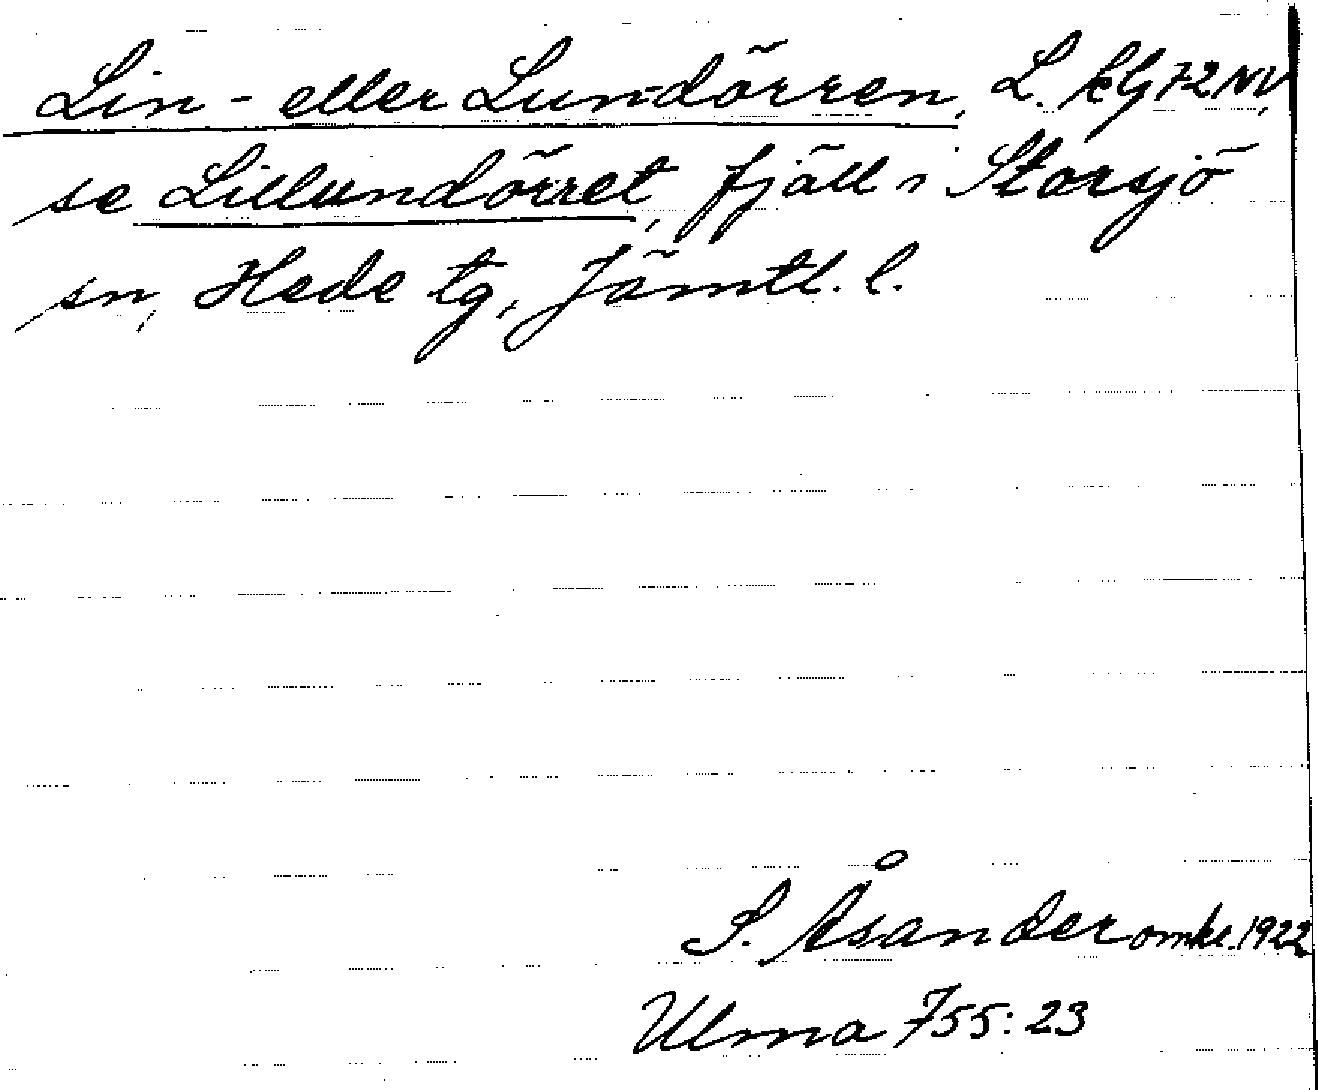 Lin- eller Lundörren, L. kG 72 NV,
se Lillundörret, fjäll i Storsjö
sn, Hede tg, Jämtl. l.
S. Åsander omkr. 1922
Ulma 755:23